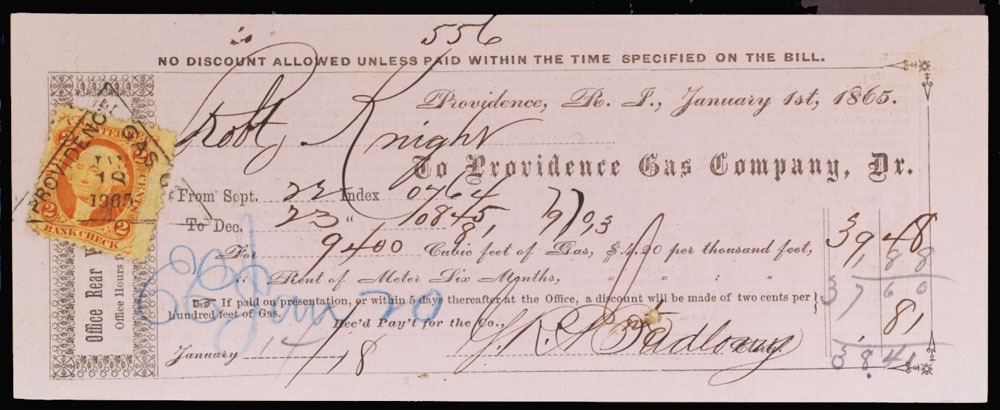 556
NO DISCOUNT ALLOWED UNLESS PAID WITHIN THE TIME SPECIFIED ON THE BILL.
Providence, R. I., January 1st, 1865.
Robt Knight
To Providence Gas Company, Dr.
From Sept. 22 Index 0764
To Dec. 23 " 10845
81 9)0,3
For 9400 Cubic feet of Gas, $4.20 per thousand feet, 39 48
1 88
" Rent of Meter Six Months, " " " "
37 60
If paid on presentation, or within 5 days thereafter at the Office, a discount will be made of two cents per
hundred feet of Gas.
81
Rec'd Pay't for the Co.,
January 14/18
38.41
PROVIDENCE GAS Co
1865
2 2
BANK CHECK
Office Rear
Office Hours